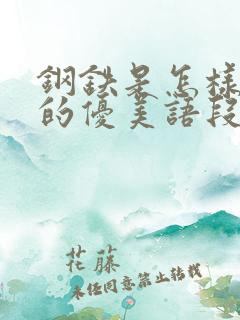 鋼鉄是怎樣
的優美語段
花藤
未任同意禁止转载